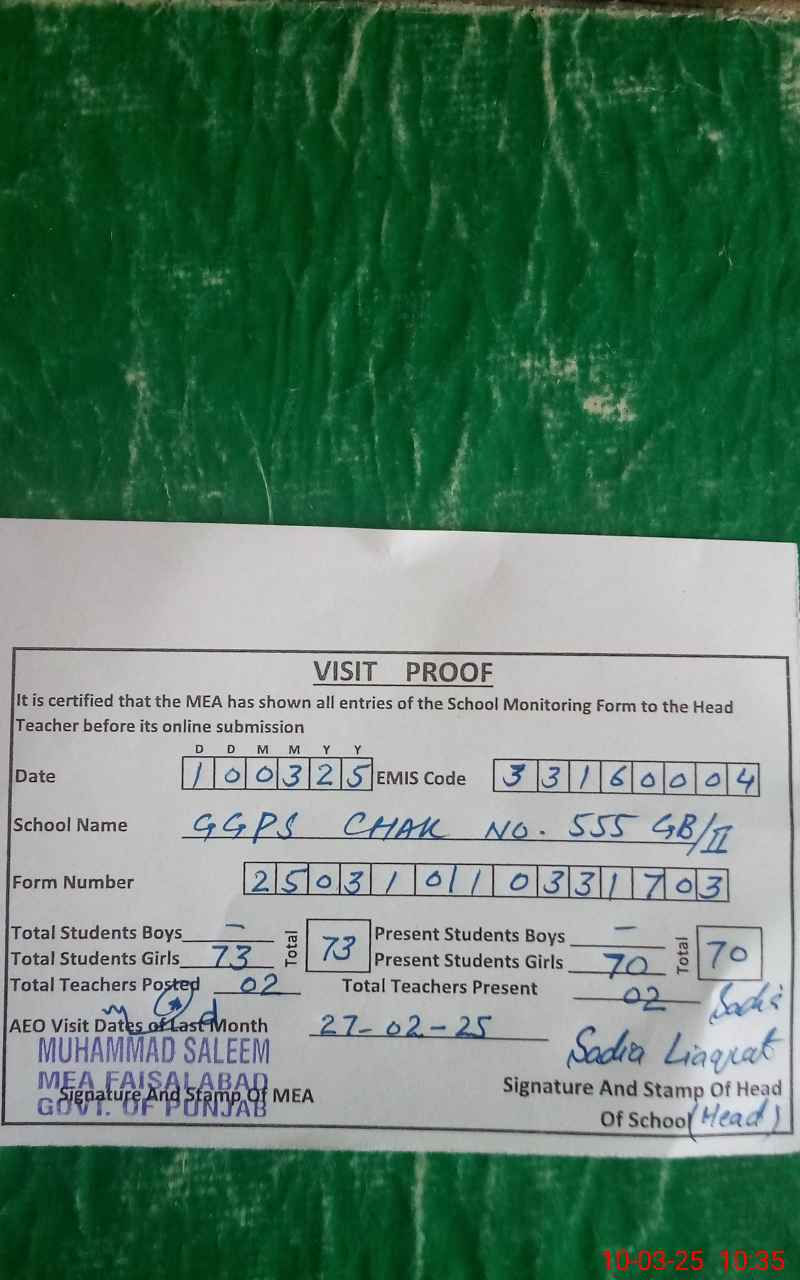 VISIT PROOF
It is certified that the MEA has shown all entries of the School Monitoring Form to the Head
Teacher before its online submission
D D M M Y Y
Date 1 0 0 3 2 5 EMIS Code 3 3 1 6 0 0 0 4
School Name GGPS CHAK NO. 555 GB/II
Form Number 2 5 0 3 1 0 1 1 0 3 3 1 7 0 3
Total Students Boys - Total 73 Present Students Boys - Total 70
Total Students Girls 73 Present Students Girls 70
Total Teachers Posted 02 Total Teachers Present 02
Sadia
AEO Visit Dates of Last Month 27-02-25
Sadia Liaqrat
MUHAMMAD SALEEM
MEA FAISALABAD
GOVT. OF PUNJAB
Signature And Stamp Of MEA
Signature And Stamp Of Head
Of School (Head)
10-03-25 10:35